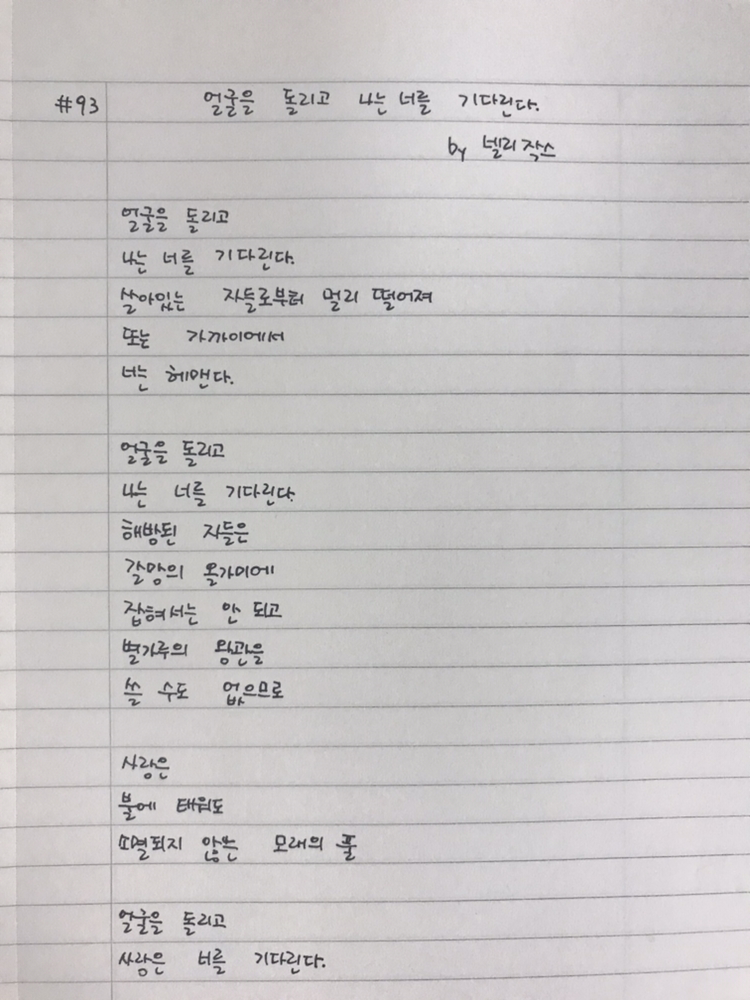 #93 얼굴을 돌리고 나는 너를 기다린다.
by 넬리 작스
얼굴을 돌리고
나는 너를 기다린다.
살아있는 자들로부터 멀리 떨어져
또는 가까이에서
너는 헤맨다.
얼굴을 돌리고
나는 너를 기다린다
해방된 자들은
갈망의 올가미에
잡혀서는 안 되고
별가루의 왕관을
쓸 수도 없으므로
사랑은
불에 태워도
소멸되지 않는 모래의 풀
얼굴을 돌리고
사랑은 너를 기다린다.